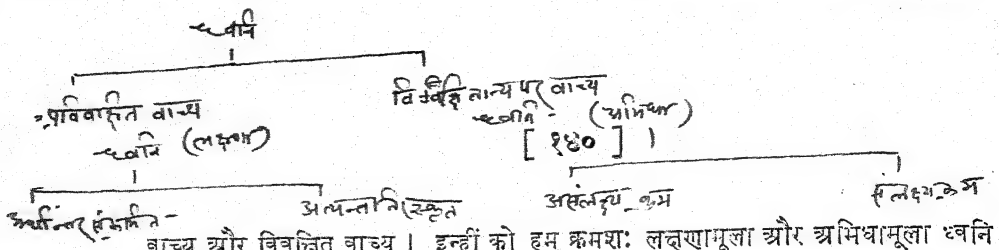 ध्वनि
अविवक्षित वाच्य
ध्वनि (लक्षणा)
विवक्षितान्यपर वाच्य
ध्वनि - (अभिधा)
[ १४० ] ।
अर्थान्तर संक्रमित -
अत्यन्ततिरस्कृत
असंलक्ष्य-क्रम
संलक्ष्य-क्रम
वाच्य और विवक्षित वाच्य । इन्हीं को हम क्रमशः लक्षणामूला और अभिधामूला ध्वनि